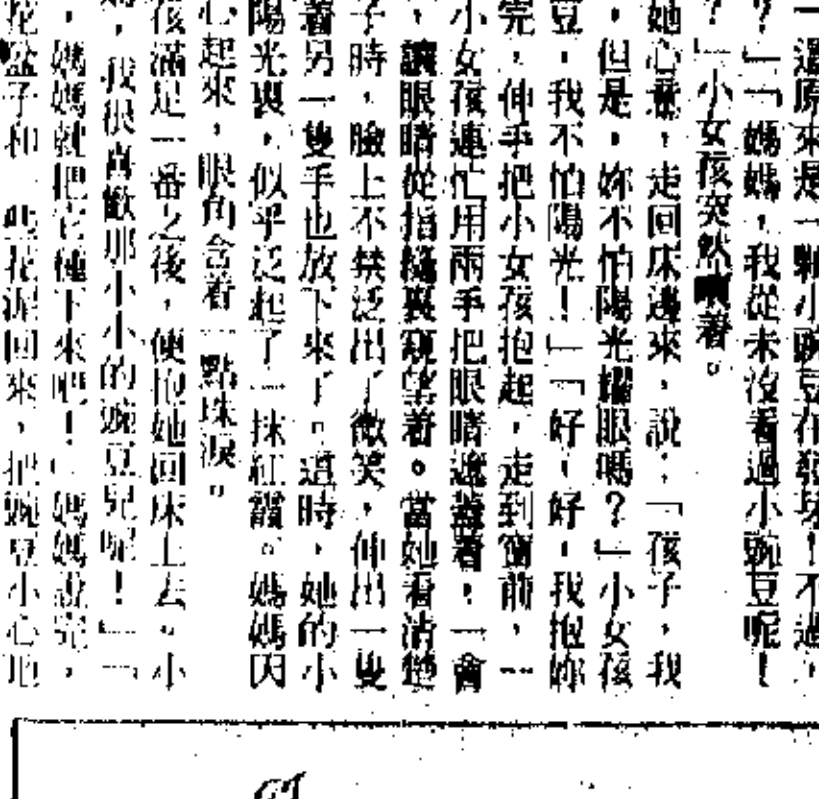 一還原來是一顆小豌豆在發芽！不過，
？」「媽媽，我從未沒看過小豌豆呢！
？」小女孩突然嚷着。
她心意，走回床邊來，說：「孩子，我
，但是，妳不怕陽光耀眼嗎？」小女孩
豆，我不怕陽光！」「好，好，我抱妳
完，伸手把小女孩抱起，走到窗前，一
小女孩連忙用兩手把眼睛遮蓋着，一會
，讓眼睛從指縫裏窺望着。當她看清楚
子時，臉上不禁泛出了微笑，伸出一隻
着另一隻手也放下來了。這時，她的小
陽光裏，似乎泛起了一抹紅霞。媽媽因
心起來，眼角含着一點珠淚。
孩滿足一番之後，便抱她回床上去。小
，我很喜歡那小小的豌豆兒呢！」「
，媽媽就把它種下來吧！」媽媽說完，
盆子和一些花泥回來，把豌豆小心地